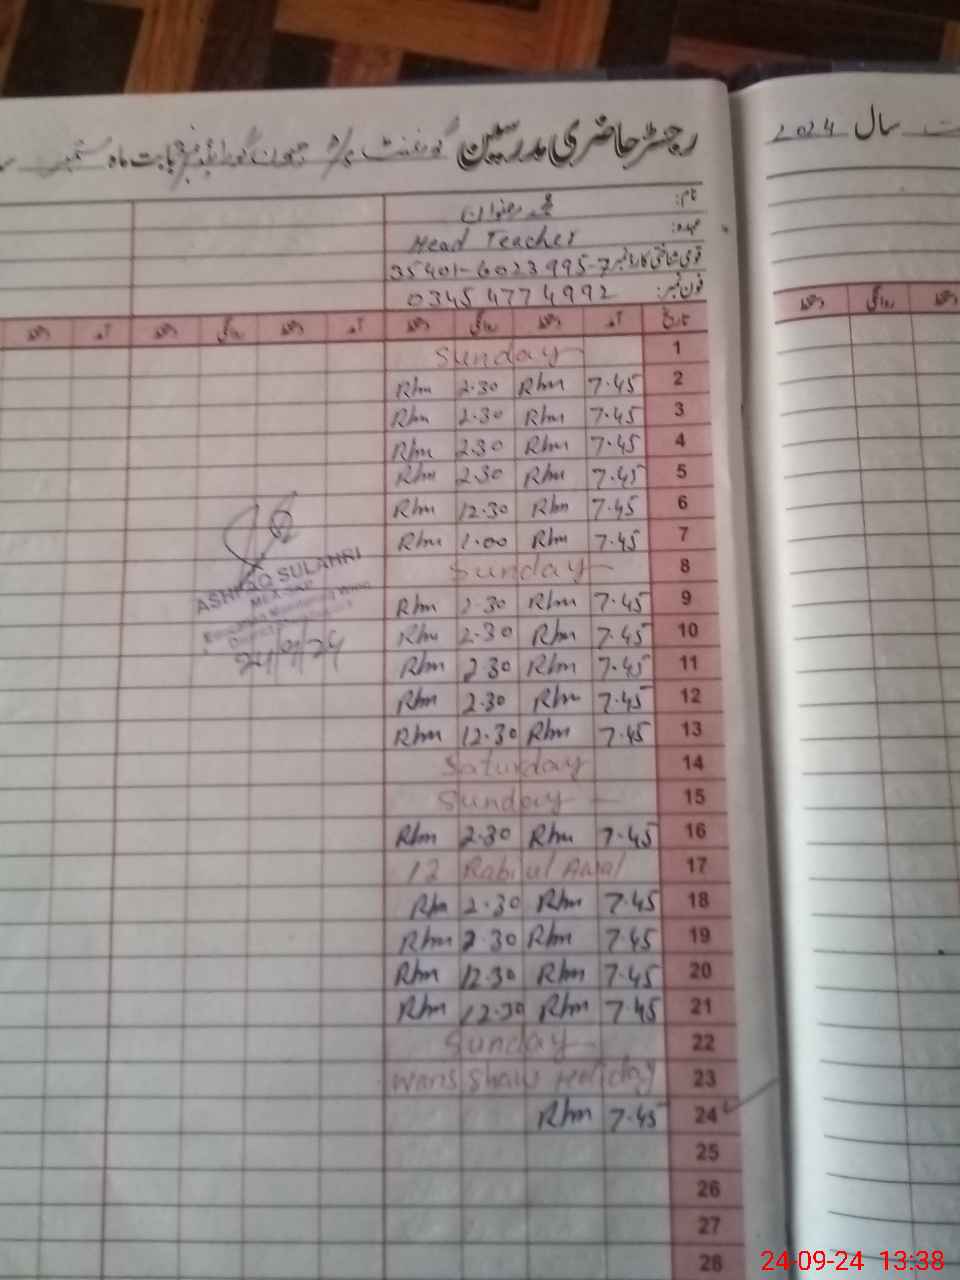 رجسٹر حاضری مدرسین گورنمنٹ بابت ماہ ستمبر
سال 2024
نام: محمد رضوان
عہدہ: Head Teacher
قومی شناختی کارڈ نمبر 35401-6023995-7
فون نمبر: 0345 4774992
تاریخ آمد دستخط روانگی دستخط آمد دستخط روانگی دستخط آمد دستخط
دستخط روانگی دستخط
1 Sunday
2 7.45 Rhm 2.30 Rhm
3 7.45 Rhm 2.30 Rhm
4 7.45 Rhm 2.30 Rhm
5 7.45 Rhm 2.30 Rhm
6 7.45 Rhm 12.30 Rhm
7 7.45 Rhm 1.00 Rhm
8 Sunday
9 7.45 Rhm 2.30 Rhm
10 7.45 Rhm 2.30 Rhm
11 7.45 Rhm 2.30 Rhm
12 7.45 Rhm 2.30 Rhm
13 7.45 Rhm 12.30 Rhm
14 Saturday
15 Sunday
16 7.45 Rhm 2.30 Rhm
17 12 Rabi ul Awal
18 7.45 Rhm 2.30 Rhm
19 7.45 Rhm 2.30 Rhm
20 7.45 Rhm 12.30 Rhm
21 7.45 Rhm 12.30 Rhm
22 Sunday
23 Waris Shah Holiday
24 7.45 Rhm
25
26
27
28
ASHFAQ SULAHRI
24/9/24
24-09-24 13:38